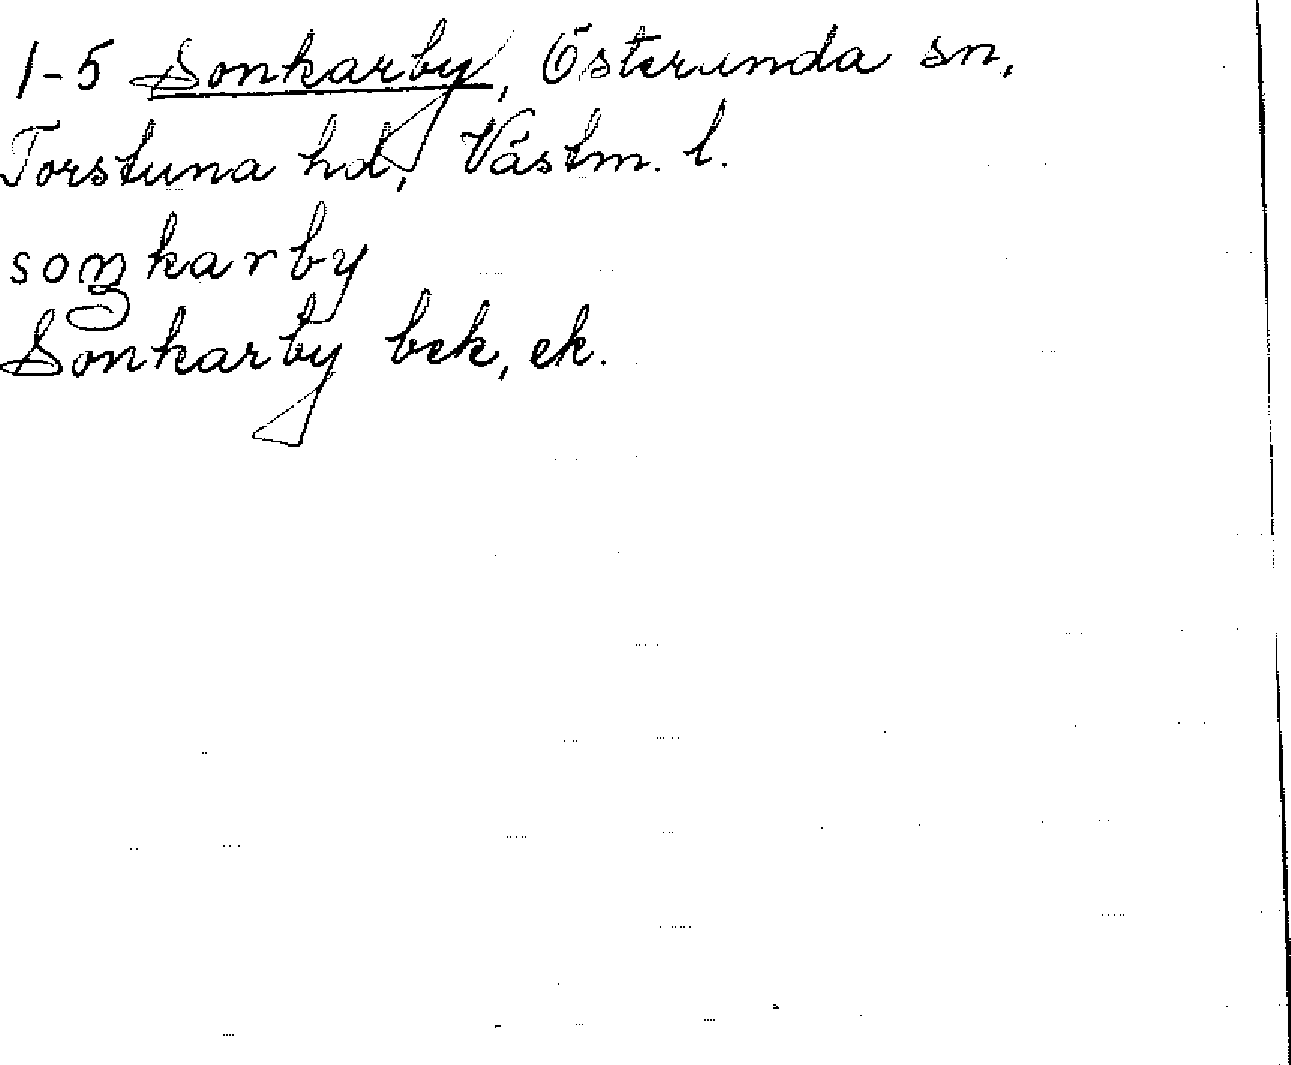 1-5 Sonkarby, Österunda sn,
Torstuna hd, Västm. l.
soŋkarby
Sonkarby bek, ek.